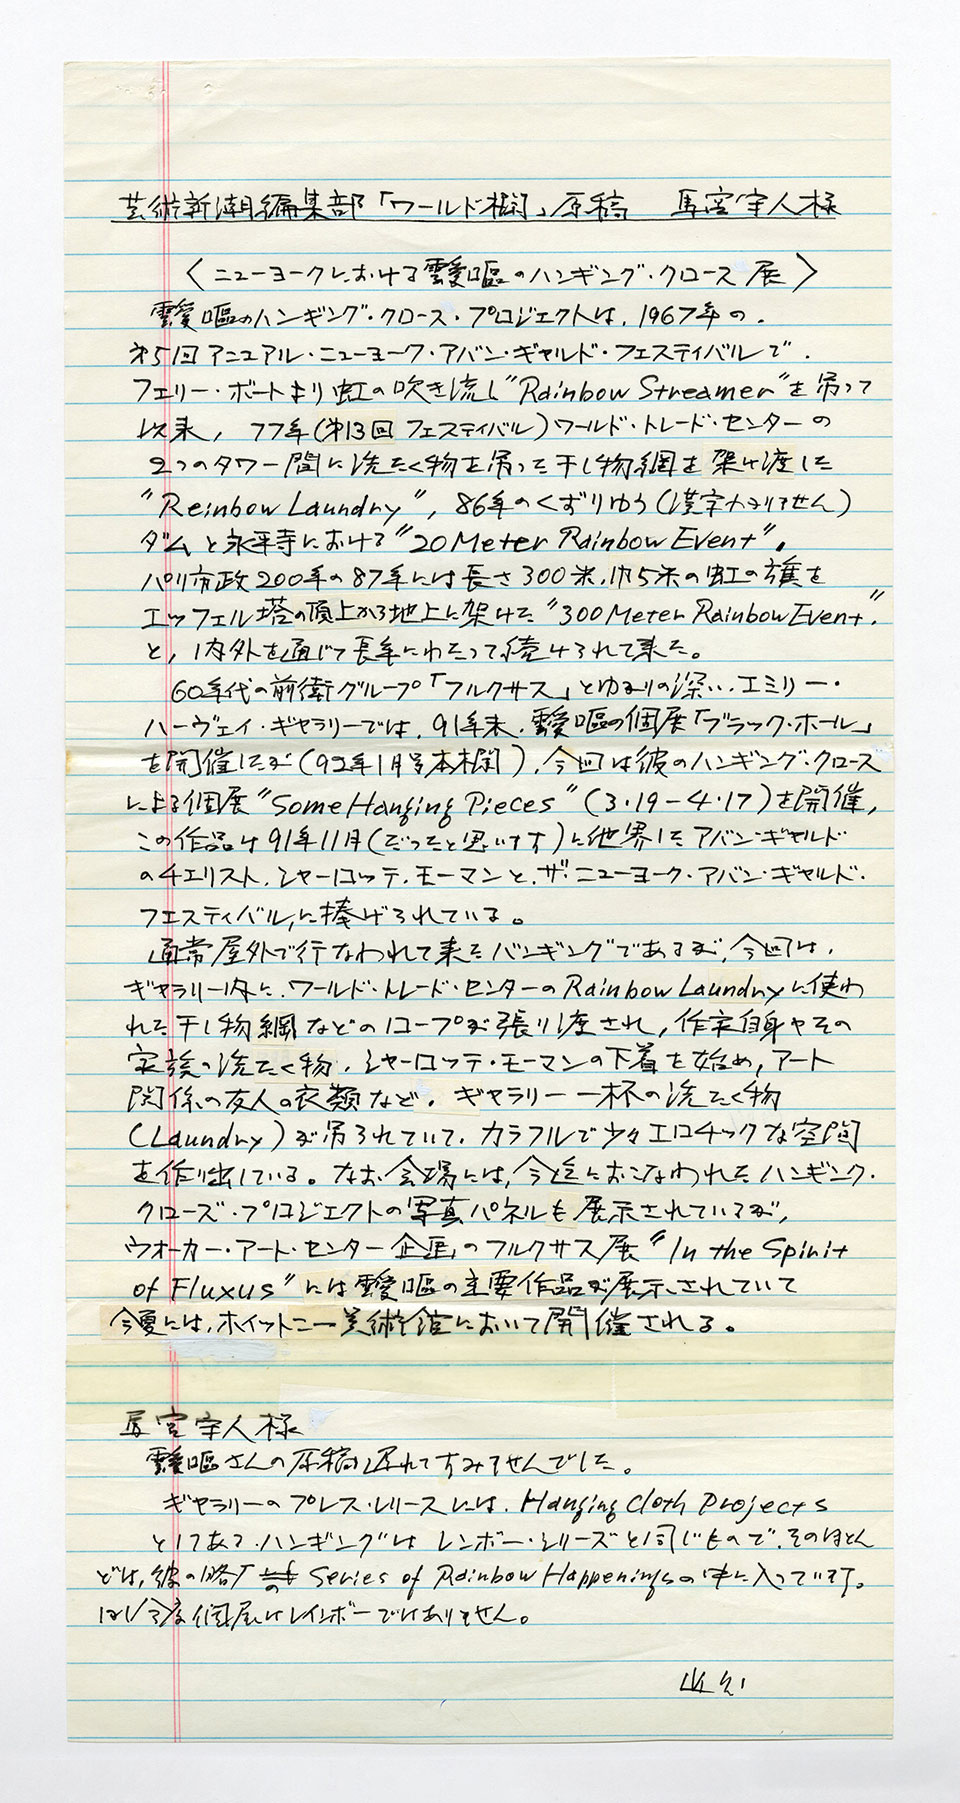 芸術新潮編集部「ワールド欄」原稿 馬宮宇人様
〈ニューヨークにおける靉嘔のハンギング・クロース展〉
靉嘔のハンギング・クロース・プロジェクトは、1967年の、
第5回アニュアル・ニューヨーク・アバン・ギャルド・フェスティバルで、
フェリー・ボートより虹の吹き流し"Rainbow Streamer"を吊って
以来, 77年(第13回フェスティバル)ワールド・トレード・センターの
2つのタワー間に洗たく物を吊った干し物綱を架け渡した
"Reinbow Laundry", 86年のくずりゆう(漢字わかりません)
ダムと永平寺における"20 Meter Rainbow Event"。
パリ市政200年の87年には長さ300米、巾5米の虹の旗を
エッフェル塔の頂上から地上に架けた"300 Meter Rainbow Event".
と, 内外を通じて長年にわたって続けられて来た。
60年代の前衛グループ「フルクサス」とゆかりの深い、エミリー・
ハーヴェイ・ギャラリーでは、91年末、靉嘔の個展「ブラック・ホール」
を開催したが(92年1月号本欄)、今回は彼のハンギング・クロース
による個展"Some Hanging Pieces"(3・19-4・17)を開催,
この作品は91年11月(だったと思います)に他界したアバン・ギャルド
のチェリスト、シャーロッテ・モーマンと、ザ・ニューヨーク・アバン・ギャルド・
フェスティバル,に捧げられている。
通常屋外で行なわれて来たハンギングであるが,今回は、
ギャラリー内に、ワールド・トレード・センターのRainbow Laundryに使わ
れた干し物綱などのロープが張り渡され,作家自身やその
家族の洗たく物、シャーロッテ・モーマンの下着を始め,アート
関係の友人の衣類など、ギャラリー一杯の洗たく物
(Laundry)が吊られていて、カラフルで少々エロチックな空間
を作り出している。なお会場には,今迄におこなわれたハンギング・
クローズ・プロジェクトの写真パネルも展示されているが,
ウオーカー・アート・センター企画のフルクサス展"In the Spirit
of Fluxus"には靉嘔の主要作品が展示されていて
今夏には,ホイットニー美術館において開催される。
馬宮宇人様
靉嘔さんの原稿遅れてすみませんでした。
ギャラリーのプレス・レリースには、Hanging Cloth Projects
としてある・ハンギングはレンボー・シリーズと同じもので、そのほとん
どは,彼の略 の Series of Rainbow Happeningsの中に入っています。
個展はレインボーではありません。